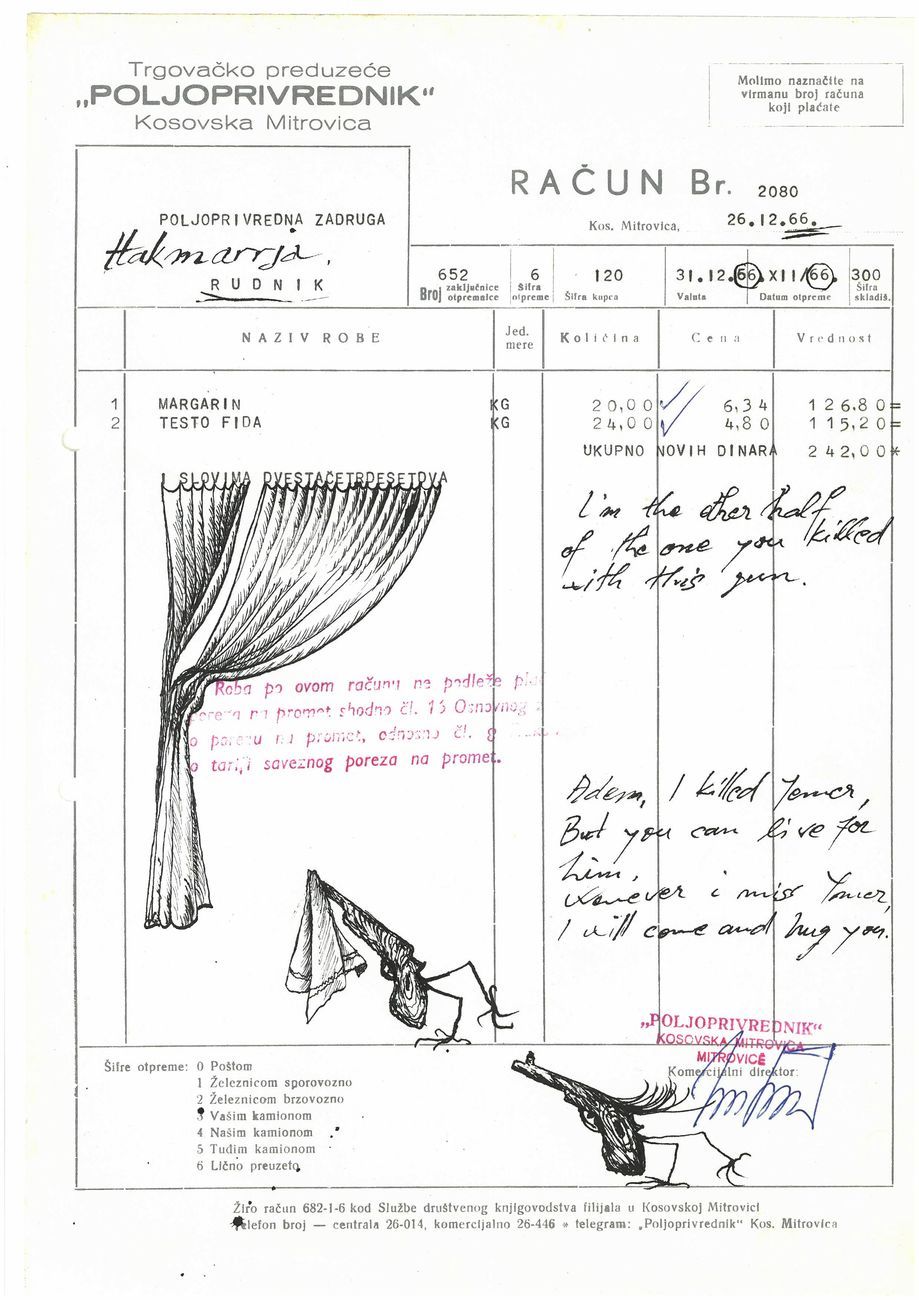 Trgovačko preduzeće
„POLJOPRIVREDNIK“
Kosovska Mitrovica
Molimo naznačite na
virmanu broj računa
koji plaćate
RAČUN Br. 2080
Kos. Mitrovica, 26.12.66.
POLJOPRIVREDNA ZADRUGA
Hakmarrja.
RUDNIK
652 6 120 31.12.66. XII/66. 300
Broj zaključnice otpremnice Šifra otpreme Šifra kupca Valuta Datum otpreme Šifra skladiš.
NAZIV ROBE Jed. mere Količina Cena Vrednost
1 MARGARIN KG 20,00 6,34 126.80=
2 TESTO FIDA KG 24,00 4,80 115,20=
UKUPNO NOVIH DINARA 242,00*
I SLOVIMA DVESTAČETRDESETDVA
I'm the other half
of the one you killed
with this gun.
Roba po ovom računu ne podleže
poreza na promet shodno čl. 15 Osnovnog
o porezu na promet, odnosno čl. g
o tarifi saveznog poreza na promet.
Adem, I killed Ymer,
But you can live for
him,
whenever i miss Ymer,
I will come and hug you.
„POLJOPRIVREDNIK“
KOSOVSKA MITROVICA
MITROVICË
Komercijalni direktor:
Šifre otpreme: 0 Poštom
1 Železnicom sporovozno
2 Železnicom brzovozno
3 Vašim kamionom
4 Našim kamionom
5 Tuđim kamionom
6 Lično preuzeto
Žiro račun 682-1-6 kod Službe društvenog knjigovodstva filijala u Kosovskoj Mitrovici
Telefon broj — centrala 26-014, komercijalno 26-446 * telegram: „Poljoprivrednik“ Kos. Mitrovica